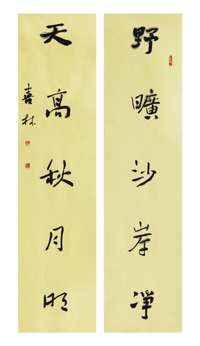 野曠沙岸淨
天高秋月明
喜林